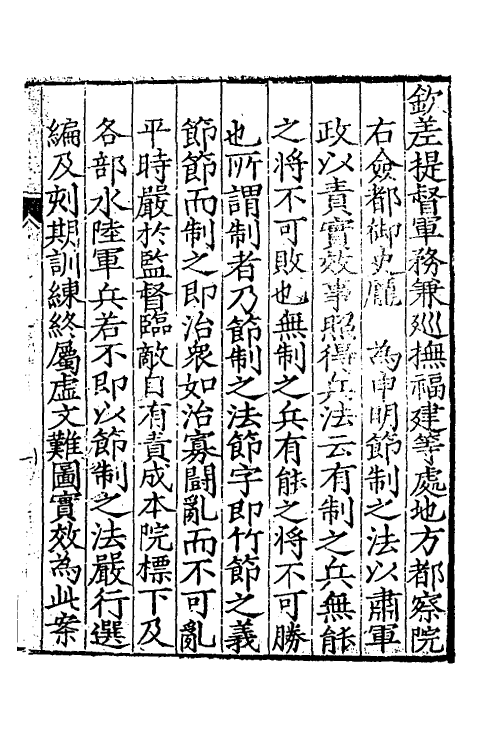 欽差提督軍務兼巡撫福建等處地方都察院
右僉都御史龐　為申明節制之法以肅軍
政以責實效事照得兵法云有制之兵無能
之將不可敗也無制之兵有能之將不可勝
也所謂制者乃節制之法節字即竹節之義
節節而制之即治衆如治寡鬪亂而不可亂
平時嚴於監督臨敵自有責成本院標下及
各部水陸軍兵若不即以節制之法嚴行選
編及刻期訓練終屬虛文難圖實效為此案